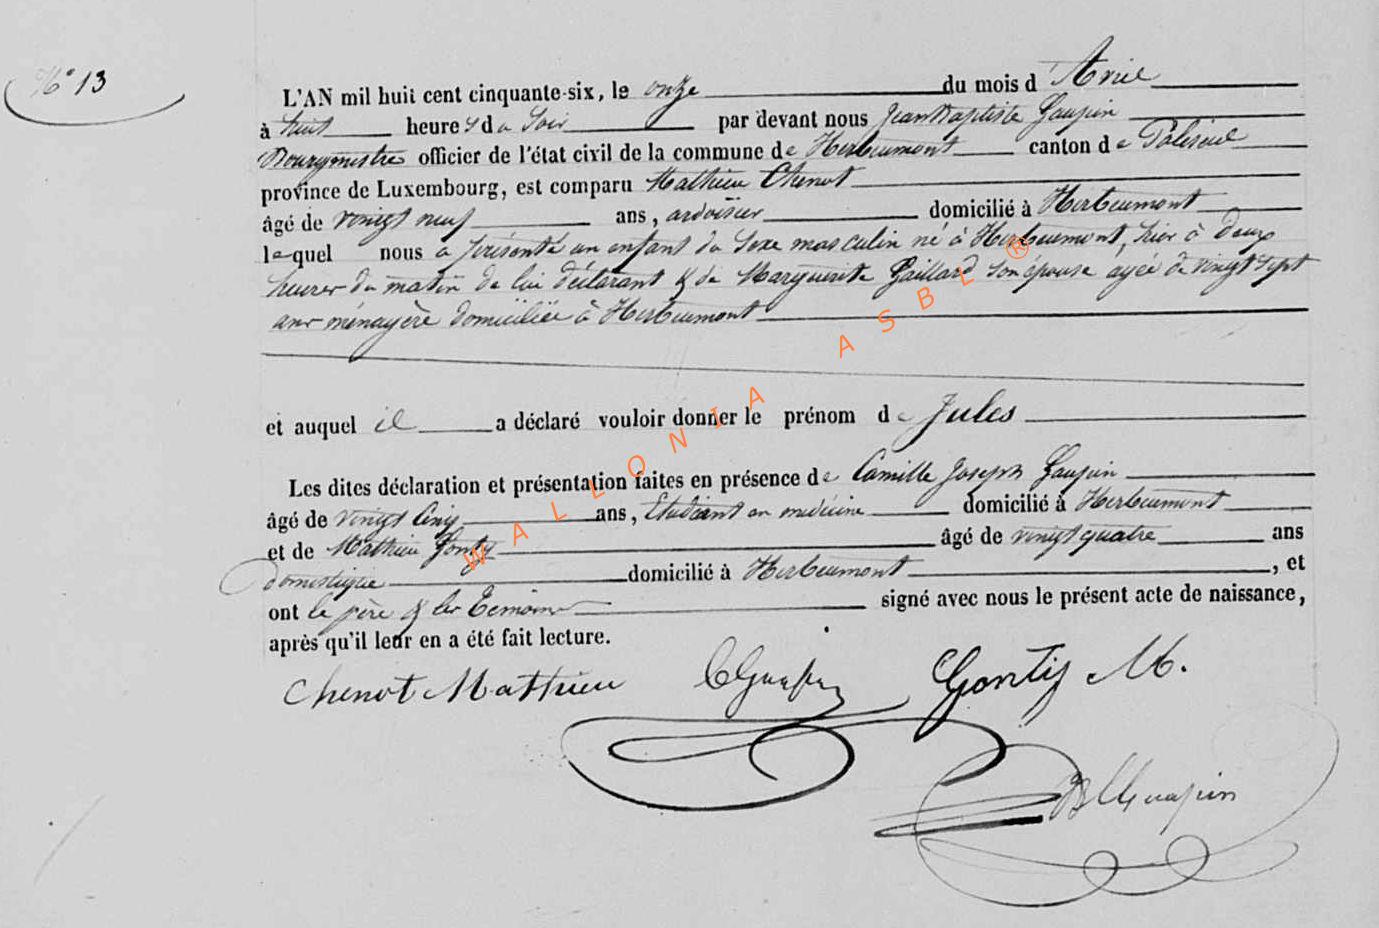 N° 13
L'AN mil huit cent cinquante-six, le onze du mois d'Avril
à huit heures du Soir par devant nous Jean Baptiste Guapin
Bourgmestre officier de l'état civil de la commune de Herbeumont canton de Paliseul
province de Luxembourg, est comparu Mathieu Chenot
âgé de vingt neuf ans, ardoisier domicilié à Herbeumont
lequel nous a présenté un enfant du Sexe masculin né à Herbeumont, hier à deux
heures du matin de lui déclarant & de Marguerite Gaillard son épouse agée de vingt sept
ans ménagère domiciliée à Herbeumont
et auquel il a déclaré vouloir donner le prénom de Jules
Les dites déclaration et présentation faites en présence de Camille Joseph Guapin
âgé de vingt Cinq ans, Etudiant en médecine domicilié à Herbeumont
et de Mathieu Gontis âgé de vingt quatre ans
domestique domicilié à Herbeumont, et
ont le père & les Temoins signé avec nous le présent acte de naissance,
après qu'il leur en a été fait lecture.
Chenot Mathieu CGuapin Gontis M.
JBGuapin
WALLONIA ASBL ®